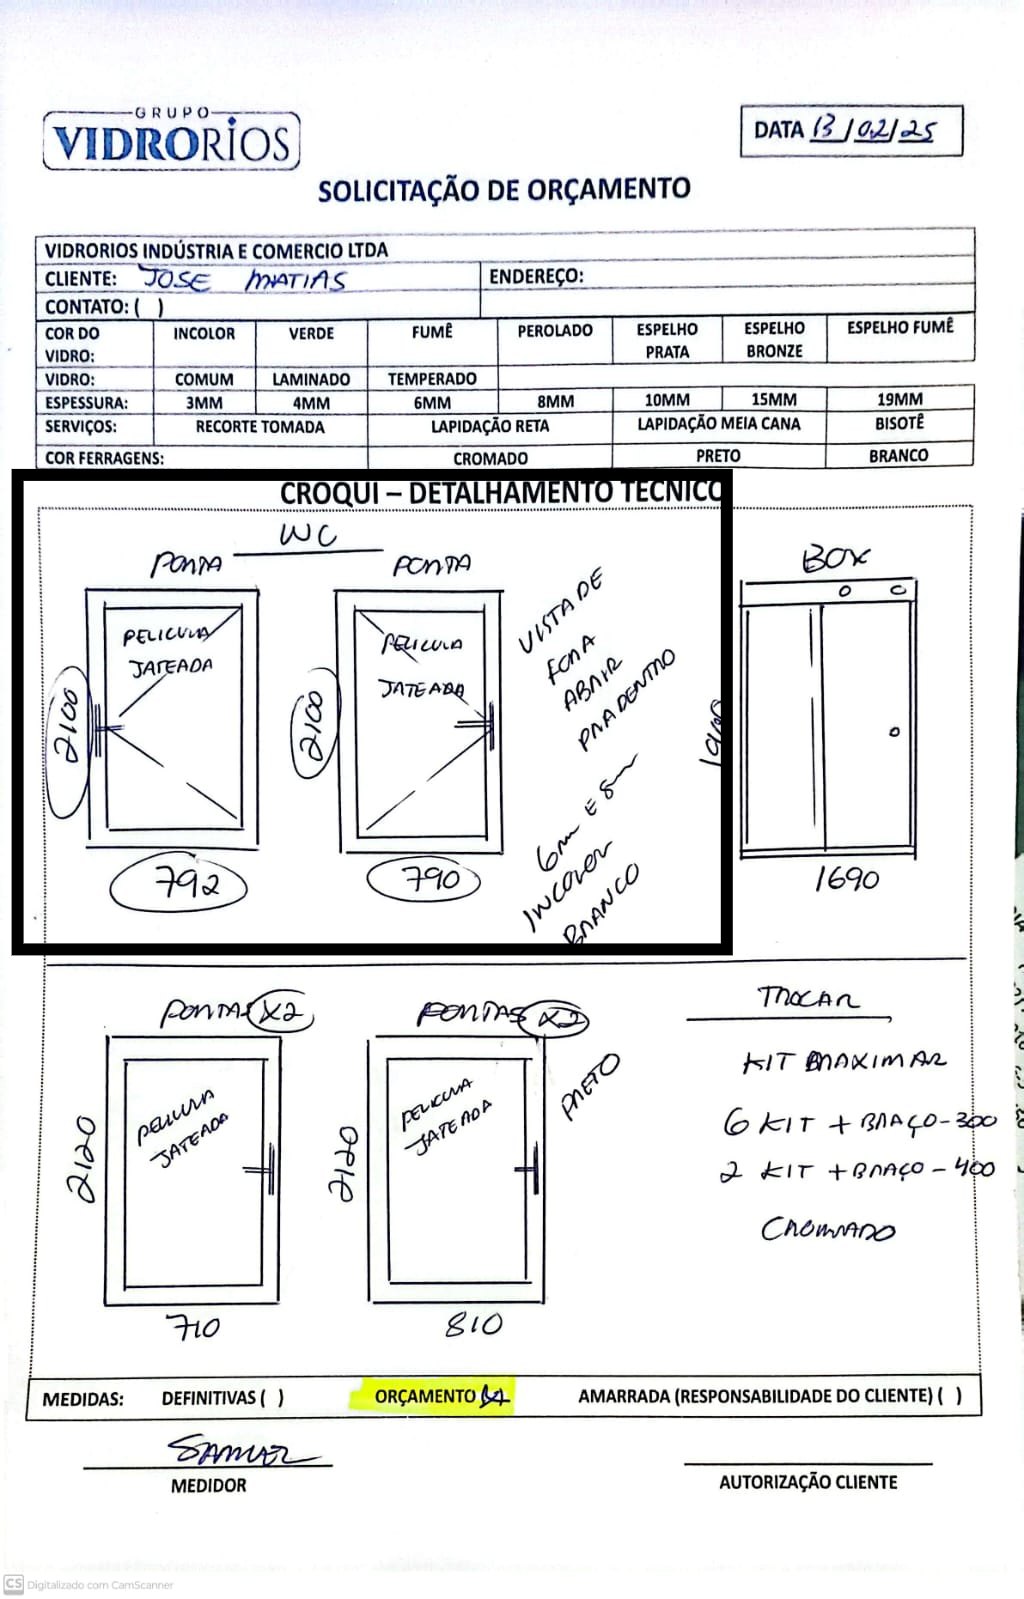 GRUPO
VIDRORIOS
DATA 13/02/25
SOLICITAÇÃO DE ORÇAMENTO
VIDRORIOS INDÚSTRIA E COMERCIO LTDA
CLIENTE: JOSE MATIAS
ENDEREÇO:
CONTATO: ( )
COR DO VIDRO: INCOLOR VERDE FUMÊ PEROLADO ESPELHO PRATA ESPELHO BRONZE ESPELHO FUMÊ
VIDRO: COMUM LAMINADO TEMPERADO
ESPESSURA: 3MM 4MM 6MM 8MM 10MM 15MM 19MM
SERVIÇOS: RECORTE TOMADA LAPIDAÇÃO RETA LAPIDAÇÃO MEIA CANA BISOTÊ
COR FERRAGENS: CROMADO PRETO BRANCO
CROQUI – DETALHAMENTO TECNICO
WC
PORTA PORTA
BOX
PELICULA
JATEADA
2100
792
PELICULA
JATEADA
2100
790
VISTA DE
FORA
ABRIR
PRA DENTRO
6mm E 8mm
INCOLOR
BRANCO
1690
PORTAS X2
PELICULA
JATEADA
2120
710
PORTAS X2
PELICULA
JATEADA
2120
810
PRETO
TROCAR
KIT MAXIMAR
6 KIT + BRAÇO-300
2 KIT + BRAÇO-400
CROMADO
MEDIDAS: DEFINITIVAS ( ) ORÇAMENTO (X) AMARRADA (RESPONSABILIDADE DO CLIENTE) ( )
SAMUEL
MEDIDOR
AUTORIZAÇÃO CLIENTE
CS Digitalizado com CamScanner